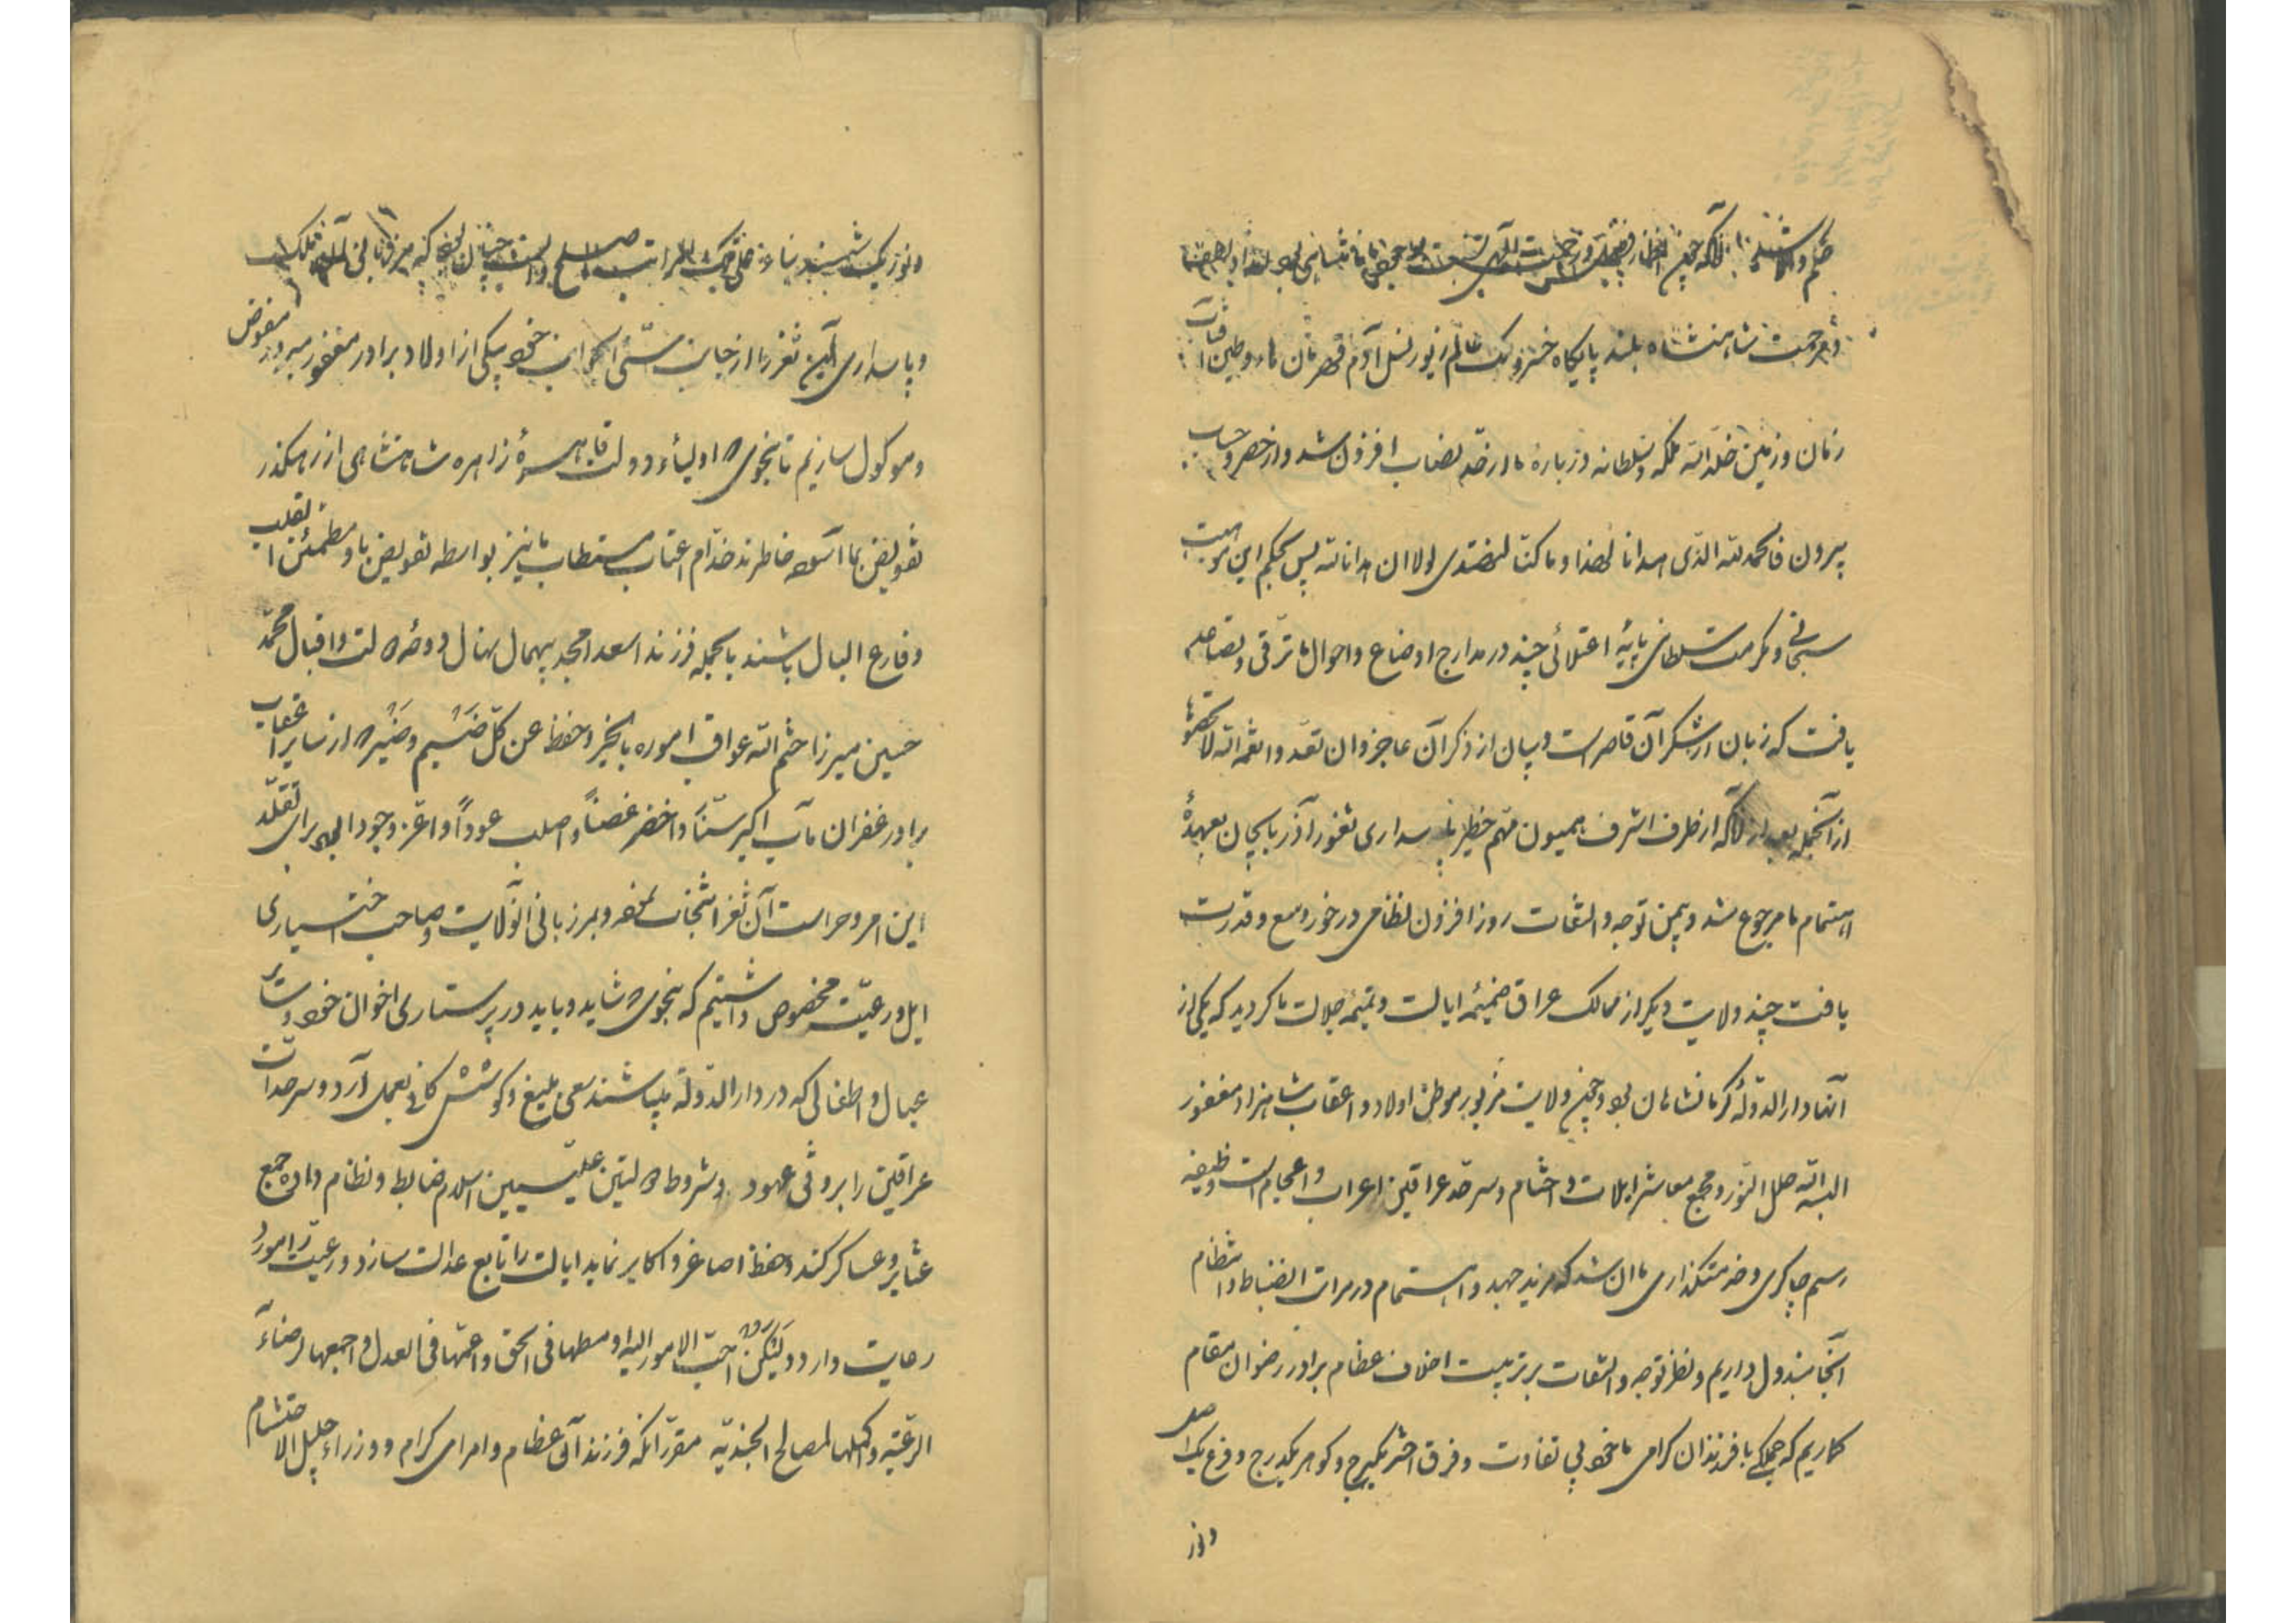 و مرحمت شاهنشاه بلند پایگاه خسرو ملک عالم زیور نسل آدم قهرمان ماء و طین آفتاب
زمان و زمین خلد الله ملکه و سلطانه درباره ما از حد نصاب افزون شد و از حصر و حساب
بیرون فالحمد لله الذی هدانا لهذا و ما کنا لنهتدی لولا ان هدانا الله پس بحکم این موهبت
سبحانی و مکرمت سلطانی پایهٔ اعتلائی چند در مدارج اوضاع و احوال ما ترقی و تصاعد
یافت که زبان از شکر آن قاصر است و بیان از ذکر آن عاجز و ان تعدوا نعمة الله لا تحصوها
از آنجمله بعد از آنکه از طرف اشرف همیون مهم خطیر پاسداری ثغور آذربایجان بعهدهٔ
اهتمام ما مرجوع شد و بیمن توجه و التفات روزافزون نظامی درخور وسع و قدرت
یافت چند ولایت دیگر از ممالک عراق ضمیمهٔ ایالت و تتمیمهٔ جلالت ما گردید که یکی از
آنها دارالدولهٔ کرمانشاهان بود و چون ولایت مزبور موطن اولاد و اعقاب شاهزاده مغفور
البسه الله حلل النور و مجمع معاشر ایلات و احشام و سرحد عراقین اعراب و اعجام است وظیفه
رسم چاکری و خدمتگذاری ما آن شد که مزید جهد و اهتمام در مراتب انضباط و انتظام
آنجا مبذول داریم و نظر توجه و التفات بر تربیت اخلاف عظام برادر رضوان مقام
گماریم که جملگی با فرزندان گرامی ما خود بی تفاوت و فرق اختر یکبرج و گوهر یکدرج و فرع یک اصل
و از
و پاسداری آن ثغر را از جانب سنی الجوانب خود بیکی از اولاد برادر مغفور مبرور مفوض
و موکول سازیم تا بنحوی که اولیاء دولت قاهرهٔ زاهره شاهنشاهی از رهگذر
تفویض بما آسوده خاطرند خدام اعتاب مستطاب ما نیز بواسطه تفویض باو مطمئن القلب
و فارغ البال باشند بالجمله فرزند اسعد امجد بیهمال نهال دوحهٔ دولت و اقبال محمد
حسین میرزا ختم الله عواقب اموره بالخیر و حفظ عن کل ضیم و ضیر که از سایر اعقاب
برادر غفران مآب اکبر سناً و اخضر غصناً و اصلب عوداً و اعز وجوداً بود برای تقلد
این امر و حراست آن ثغر انتخاب نموده و بمرزبانی آنولایت و صاحب اختیاری
ایل و رعیت مخصوص داشتیم که بنحوی که شاید و باید در پرستاری اخوان خود و سایر
عیال و اطفالی که در دارالدوله میباشند سعی بلیغ و کوشش کافی بعمل آرد و سرحدات
عراقین را بر وفق عهود و شروط دولتین علیتین اسلام ضابط و نظام داده جمع
عشایر و عساکر کند و حفظ اصاغر و اکابر نماید ایالت را تابع عدالت سازد و رعیت را مورد
رعایت دارد ولیکن احب الامور الیه اوسطها فی الحق و اعمها فی العدل و اجمعها لرضاء
الرعیه و اکملها لمصالح الجندیه مقرر آنکه فرزند آن عظام و امرای کرام و وزراء جلیل الاحتشام